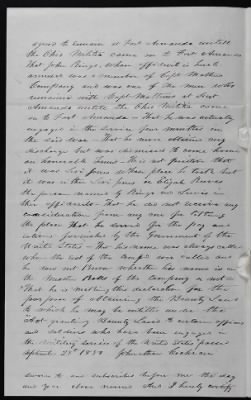 agreed to remain at Fort Amanda untill
the Ohio Militia came on to Fort Amanda
That John Bongs whose affidavit is here
annexed was a member of Capt Mathers
Company and was one of the men who
remained with Capt Matthers at Fort
Amanda untill the Ohio Militia came
on to Fort Amanda - That he was actually
engaged in the service four months in
the said War - That he never obtained any
discharge but was dismissed to come home
on honorable Terms - He is not positive that
it was Levi Jones whose place he took but
it was either Levi Jones or Elijah
the person named by Bongs and Lewis in
their affidavits - That he did not receive any
consideration from any one for taking
the place That he did it for the pay and
rations furnished by the Government of the
United States - That his name was always called
when the list of the Compy was called and
he does not Know whether his name is on
the Muster Rolls of the Company or not
That he is making this declaration for the
purpose of obtaining the Bounty Land
to which he may be entitled under the
Act granting Bounty Land to certain officers
and soldiers who have been engaged in
the military service of the United States passed
September 28th 1850 Johnathan Cochran
Sworn to and subscribed before me the day
and year above named And I hereby certify